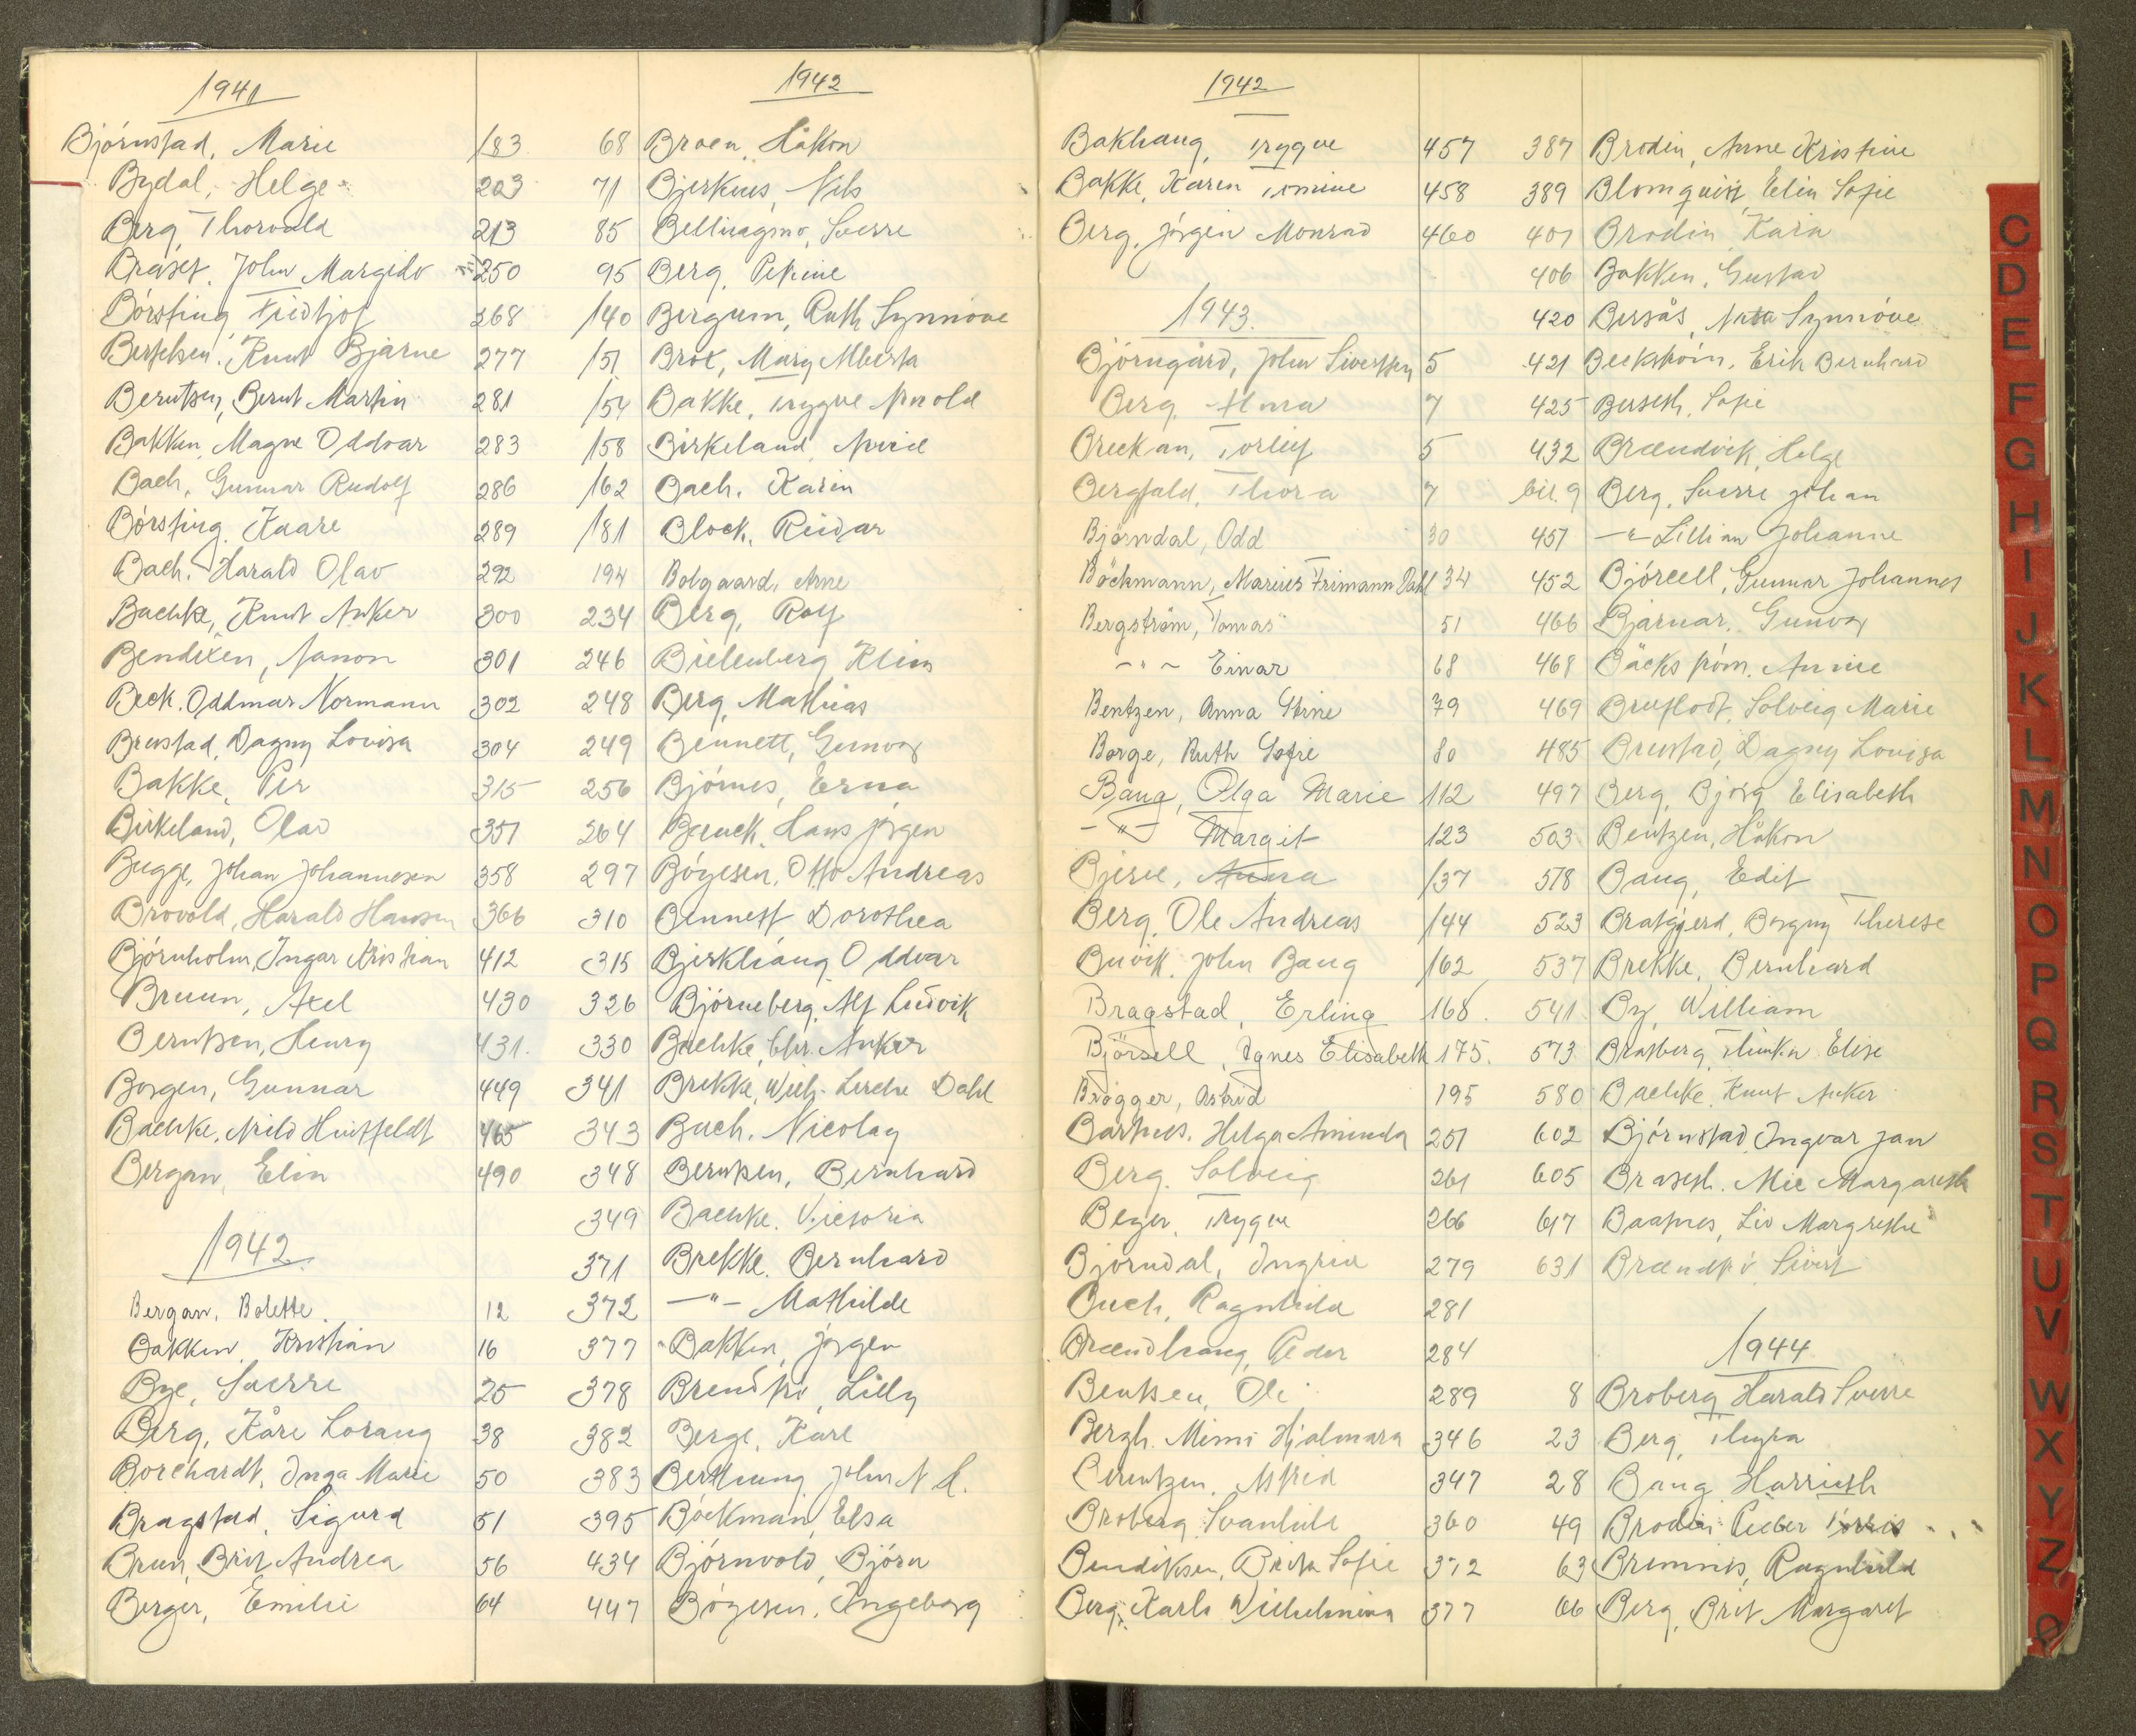 1941
Bjørnstad, Marie 183
Bydal, Helge 203
Berg, Thorvald 213
Braset, John Margido 250
Børsting, Fridtjof 268
Bertelsen, Knut Bjarne 277
Berntsen, Bernt Martin 281
Bakken, Magne Oddvar 283
Bach, Gunnar Rudolf 286
Børsting, Kaare 289
Bach, Harald Olav 292
Bachke, Knut Anker 300
Bendixen, Nanon 301
Beck, Oddmar Normann 302
Brustad, Dagny Lovisa 304
Bakke, Per 315
Birkeland, Olav 351
Bugge, Johan Johannesen 358
Brovold, Harald Hansen 366
Bjørnholm, Ingar Kristian 412
Bruun, Axel 430
Berntsen, Henry 431
Borgen, Gunnar 449
Bachke, Arild Huitfeldt 465
Bergan, Elin 490
1942
Bergan, Bolette 12
Bakken, Kristian 16
Bye, Sverre 25
Berg, Kåre Lorang 38
Borchardt, Inga Marie 50
Bragstad, Sigurd 51
Brun, Brit Andrea 56
Berger, Emilie 64
1942
68 Broen, Håkon
71 Bjerknes, Nils
85 Sverre
95 Berg, Petrine
140 Bergum, Ruth Synnøve
151 Brox, Mary Alberta
154 Bakke, Trygve Arnold
158 Birkeland,
162 Bach, Karin
181 Block, Reidar
194 Bolgaard, Arne
234 Berg, Rolf
246 Bielenberg, Klein
248 Berg, Mathias
249 Bennett, Gunvor
256 Bjørnes, Erna
264 Hans Jørgen
297 Bøgesen, Otto Andreas
310 Bennett Dorothea
315 Bjerkhaug Oddvar
326 Bjørneberg, Alf Ludvik
330 Bachke, Chr. Anker
341 Brekke, Wilh. Lerche Dahl
343 Buch, Nicolay
348 Berntsen, Bernhard
349 Bachke, Victoria
371 Brekke, Bernhard
372 —"— Mathilde
377 Bakken, Jørgen
378 Lilly
382 Berge, Kåre
383 John N.
395 Bøckman, Elsa
434 Bjørnvold, Bjørn
447 Bøgesen, Ingeborg
1942
Bakhaug, Trygve 457
Bakke, Karen 458
Berg, Jørgen Monrad 460
1943
Bjørngård, John Sivertsen 5
Berg, Anna 7
Breekan, Torleif 5
Bergfald, Thora 7
Bjørndal, Odd 30
Böckmann, Marius Frimann Dahl 34
Bergström, Tomas 51
—"— Einar 68
Bentzen, Anna Stine 79
Borge, Ruth Sofie 80
Bang, Olga Marie 112
—"— Margit 123
Bjerve, Anna 137
Berg, Ole Andreas 144
Buvik, John Bang 162
Bragstad, Erling 168
Björsell, Agnes Elisabeth 175
Brøgger, Astrid 195
Bartnes, Helga Aminda 251
Berg, Solveig 261
Beyer, Trygve 266
Bjørndal, Ingrid 279
Buch, Ragnhild 281
Brændhaug, Peder 284
Bentsen, Ole 289
Bergh, Mimi Hjalmara 346
Berntzen, Astrid 347
Broberg, Svanhild 360
Bendiksen, Brita Sofie 372
Berg, Karla Wilhelmina 377
387 Brodin, Anne Kristine
389 Blomquist, Elin Sofie
401 Brodin, Karin
406 Bakken, Gustav
420 Bersås, Synnøve
421 Beckstrøm, Erik Bernhard
425 Berseth, Sofie
432 Brændvik, Helge
bil. 9 Berg, Sverre Johan
451 —"— Lillian Johanne
452 Bjørcell, Gunnar Johannes
466 Bjarnar, Gunvor
468 Bäckstrøm, Annie
469 Bruflodt, Solveig Marie
485 Brustad, Dagny Lovisa
497 Berg, Bjørg Elisabeth
503 Bentzen, Håkon
518 Bang, Edit
523 Bratgjerd, Borgny Therese
537 Brekke, Bernhard
541 By, William
573 Bratberg, Elise
580 Bachke, Knut Anker
602 Bjørnstad, Ingvar Jan
605 Braseth, Mie Margareth
617 Baatnes, Liv Margrethe
631 Sivert
1944
8 Broberg Harald Sverre
23 Berg, Thyra
28 Bang, Harrieth
49 Brodin
63 Bremnes, Ragnhild
66 Berg, Brit Margaret
C
D
E
F
G
H
I
J
K
L
M
N
O
P
Q
R
S
T
U
V
W
X
Y
Z
Ø